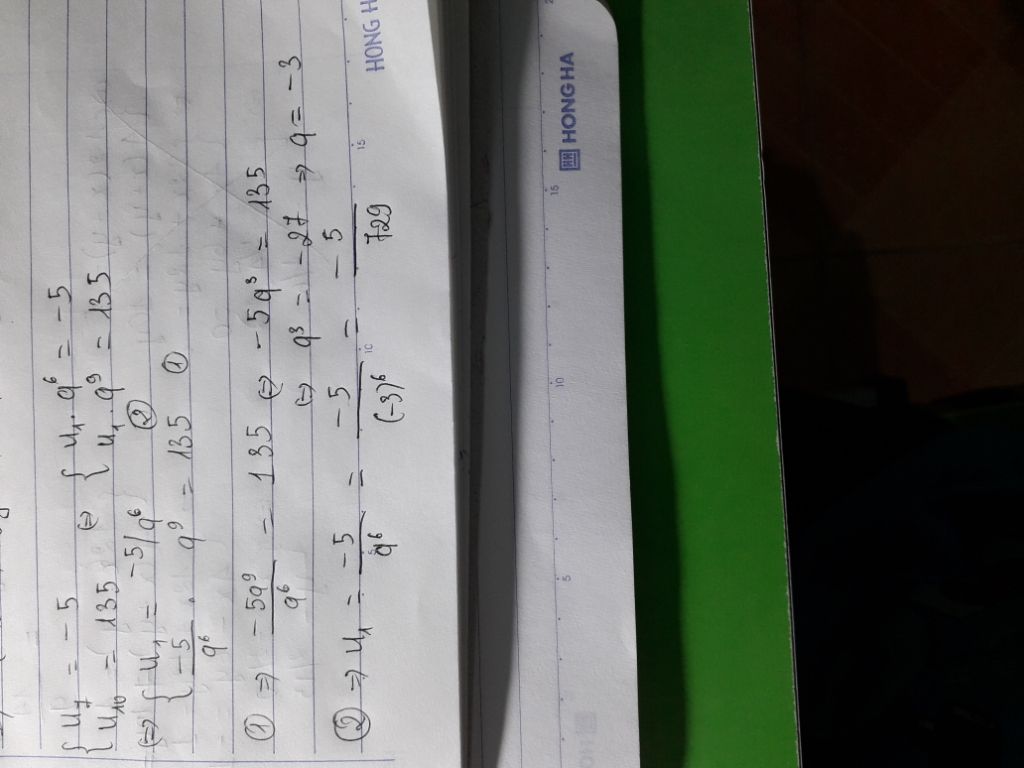 { u₇ = -5 (=) { u₁. q⁶ = -5
{ u₁₀ = 135 { u₁. q⁹ = 135
(=) { u₁ = -5/q⁶ ②
{ -5/q⁶ . q⁹ = 135 ①
① => -5q⁹/q⁶ = 135 (=) -5q³ = 135
(=) q³ = -27 => q = -3
② => u₁ = -5/q⁶ = -5/(-3)⁶ = -5/729
HONG H
5 10 15
HONG HA
5 10 15